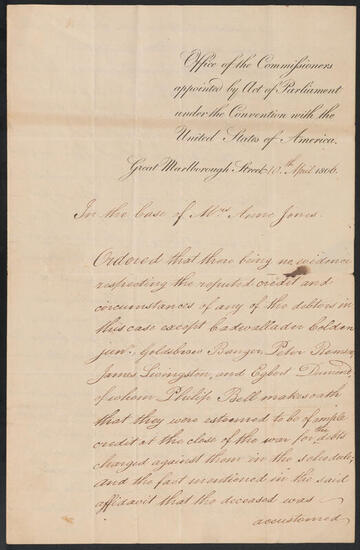 Office of the Commissioners
appointed by Act of Parliament
under the Convention with the
United States of America.
Great Marlborough Street 10th April 1806.
In the Case of Mrs Anne Jones.
Ordered that there being no evidence
respecting the reputed credit and
circumstances of any of the debtors in
this case except Cadwallader Colden
junr. Goldsbrow Banyer, Peter Remsen
James Livingston, and Egbert Dumond,
of whom Philip Bell makes oath
that they were esteemed to be of ample
credit at the close of the war for the debts
charged against them in the schedule;
and the fact mentioned in the said
affidavit that the deceased was
accustomed